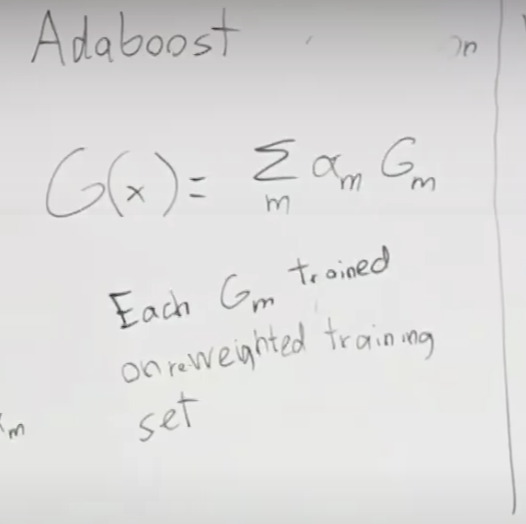 Adaboost
on
G(x) = Σ αm Gm
m
Each Gm trained
on re-weighted training
set
m